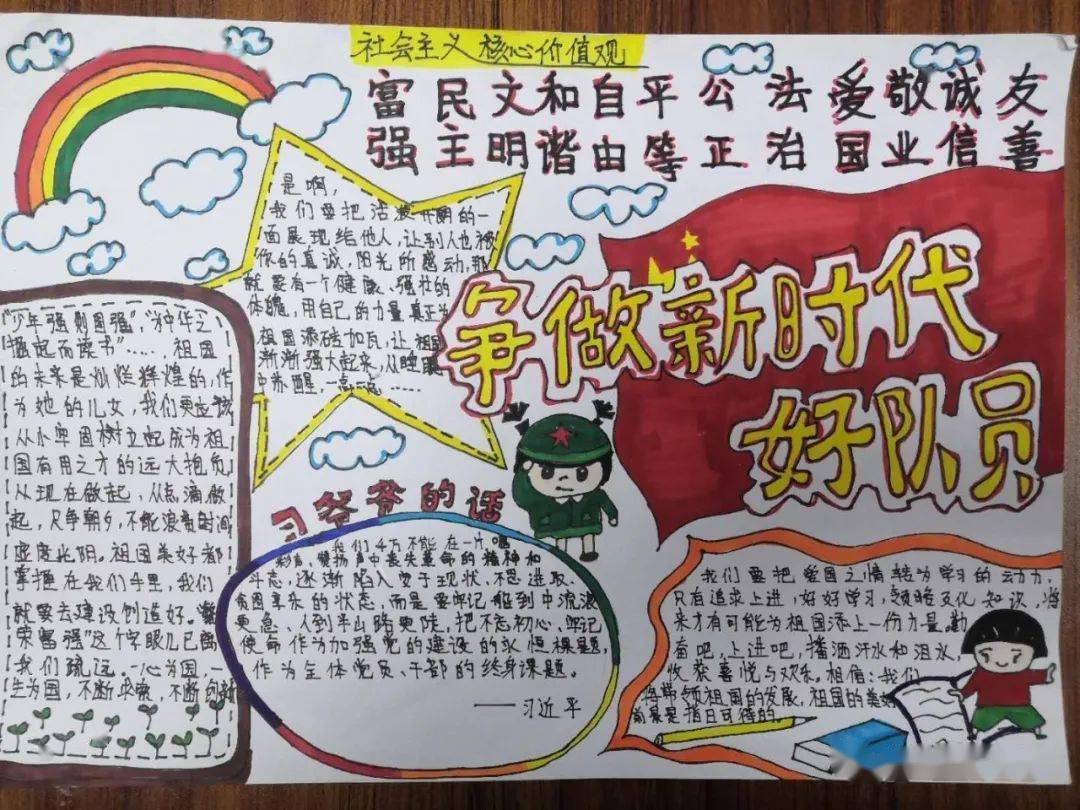 社会主义核心价值观
富民文和自平公法爱敬诚友
强主明谐由等正治国业信善
争做新时代
好队员
是啊，
我们要把活泼开朗的一
面展现给他人，让别人也被
你的真诚，阳光所感动，那
就要有一个健康、强壮的
体魄，用自己的力量真正为
祖国添砖加瓦，让祖国
渐渐强大起来，从睡眠
中苏醒，一点一点……
"少年强则国强"，"为中华之
崛起而读书"……，祖国
的未来是灿烂辉煌的，作
为她的儿女，我们更应该
从小牢固树立起成为祖
国有用之才的远大抱负
从现在做起，从点滴做
起，只争朝夕，不能浪费时间
虚度光阴。祖国美好都
掌握在我们手里，我们
就要去建设创造好。繁
荣富强"这个字眼儿已离
我们疏远。一心为国，一
生为国，不断求索，不断创新
习爷爷的话
我们千万不能在一片喝
彩声、赞扬声中丧失革命的精神和
斗志，逐渐陷入安于现状、不思进取、
贪图享乐的状态，而是要牢记船到中流浪
更急、人到半山路更陡，把不忘初心，牢记
使命作为加强党的建设的永恒课题，
作为全体党员、干部的终身课题。
——习近平
我们要把爱国之情转为学习的动力，
只有追求上进，好好学习，领略文化知识，将
来才有可能为祖国添上一份力量。勤
奋吧，上进吧，播洒汗水和泪水，
收获喜悦与欢乐。相信：我们
将带领祖国的发展，祖国的美好
前景是指日可待的。